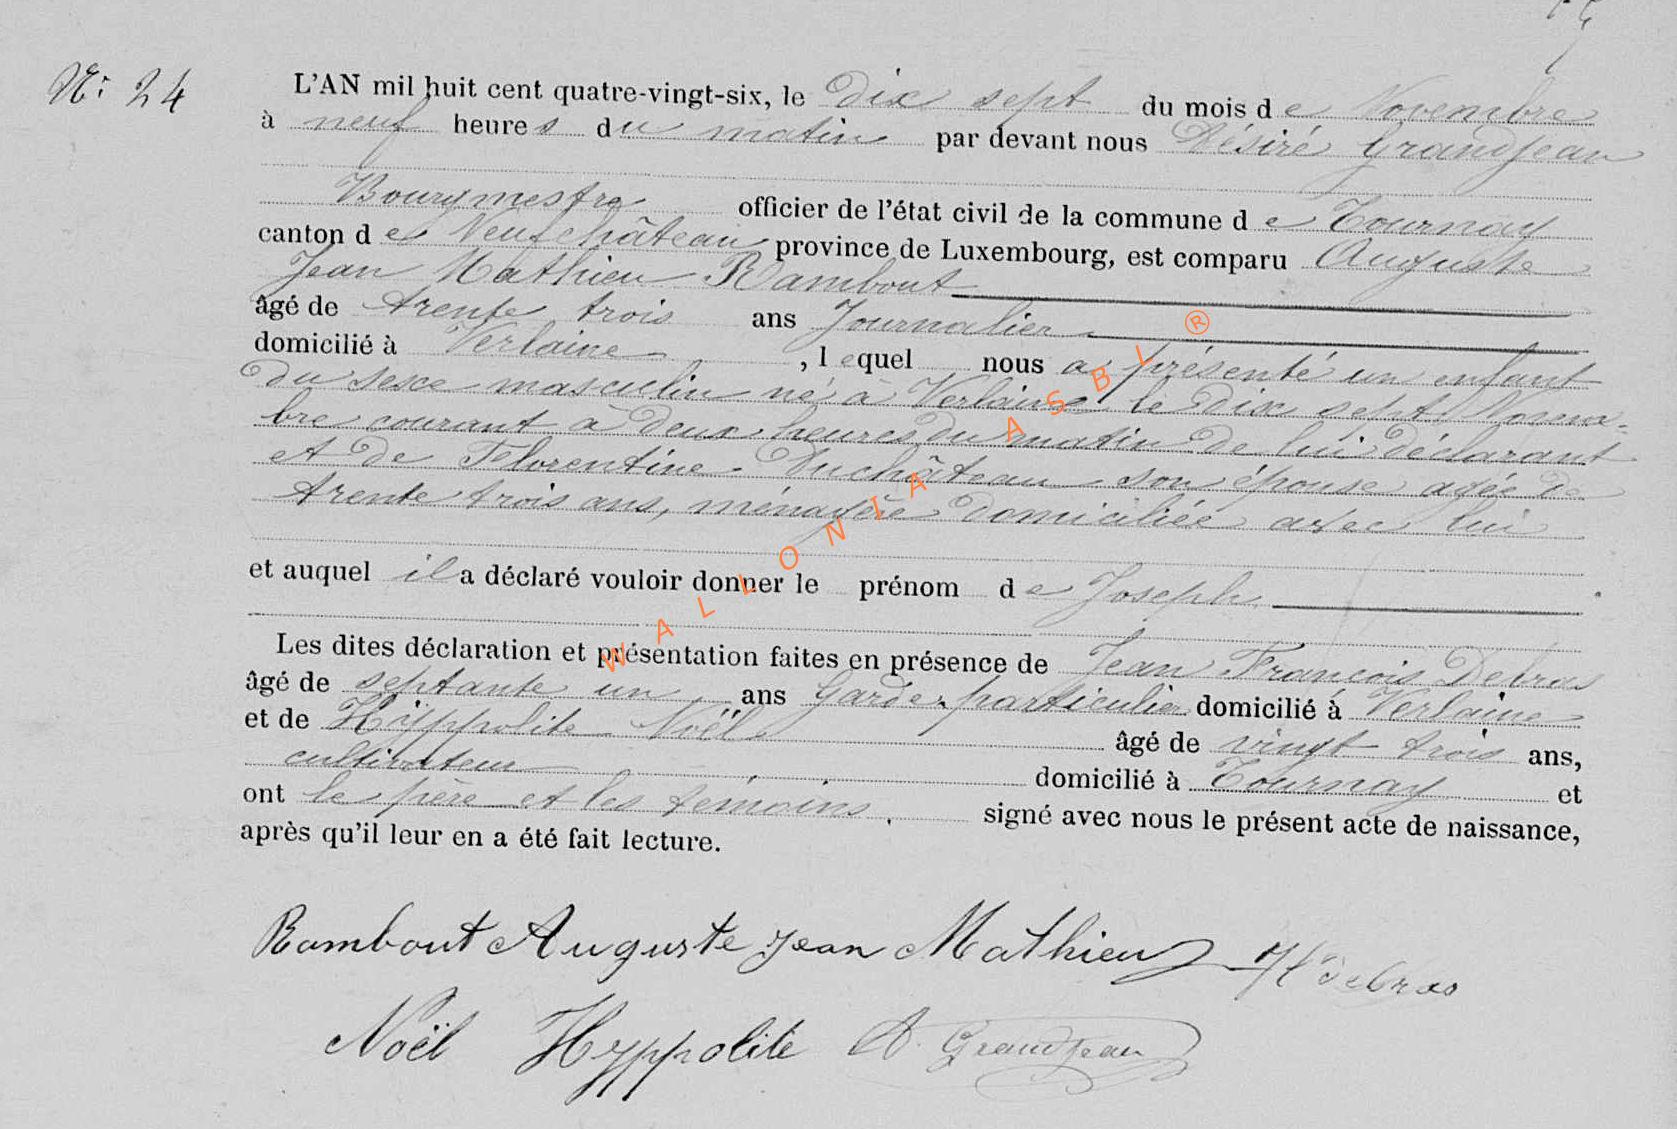 N: 24
L'AN mil huit cent quatre-vingt-six, le dix sept du mois de Novembre
à neuf heures du matin par devant nous Désiré Grandjean
Bourgmestre officier de l'état civil de la commune de Tournay
canton de Neufchâteau province de Luxembourg, est comparu Auguste
Jean Mathieu Rambout
âgé de trente trois ans Journalier
domicilié à Verlaine, lequel nous a présenté un enfant
du sexe masculin né à Verlaine le dix sept Novem-
bre courant à deux heures du matin de lui déclarant
et de Florentine Duchâteau son épouse agée de
trente trois ans, ménagère domiciliée avec lui
et auquel il a déclaré vouloir donner le prénom de Joseph
Les dites déclaration et présentation faites en présence de Jean François Debras
âgé de septante un ans Garde particulier domicilié à Verlaine
et de Hÿppolite Noël âgé de vingt trois ans,
cultivateur domicilié à Tournay et
ont le père et les témoins signé avec nous le présent acte de naissance,
après qu'il leur en a été fait lecture.
Rambout Auguste Jean Mathieu Debras
Noël Hyppolite D. Grandjean
WALLONIA ASBL ®